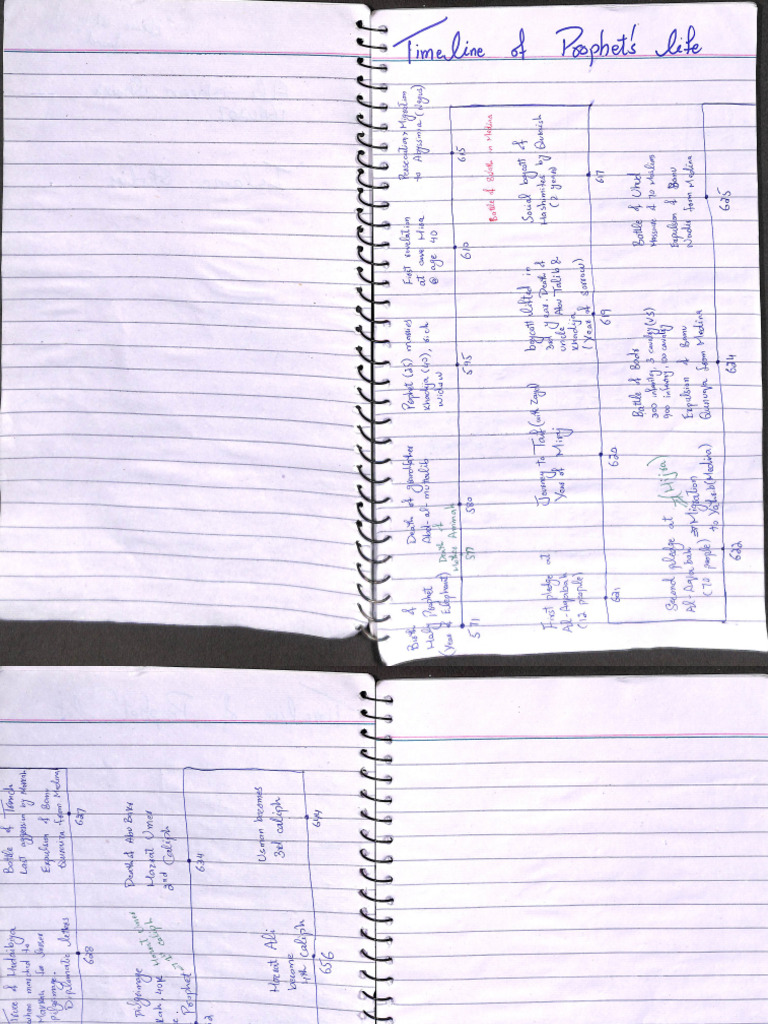 Timeline of Prophet's life
Birth of
Holy Prophet
(Year of Elephant)
571
Death of
Mother Aminah
577
Death of grandfather
Abd-al-muttalib
580
Prophet (25) marries
Khadija (40), rich
widow
595
First revelation
at cave Hira
@ age 40
610
Persecution → Migration
to Abyssinia
615
Battle of Buath in Medina
Social boycott of
Hashimites by Quraish
(2 years)
617
boycott lifted in
3rd year. Death of
uncle Abu Talib &
Khadija
(Year of Sorrow)
619
Journey to Taif (with Zayd)
Year of Miraj
620
First pledge at
Al-Aqabah
(12 people)
621
Second pledge at
Al-Aqabah ⇒ Migration
(72 people) to Yathrib (Medina)
(Hijra)
622
Battle of Badr
300 infantry, 3 cavalry (VS)
900 infantry, 100 cavalry
Expulsion of Banu
Qunuqa from Medina
624
Battle of Uhud
Massacre of 70 Muslims
Expulsion of Banu
Nadir from Medina
625
Battle of Trench
Last aggression by Meccah
Expulsion of Banu
from Medina
627
Truce of Hudaibiya
when marched to
Makkah
pilgrimage.
Diplomatic letters
628
pilgrimage
Prophet
Hazrat
1st caliph
Death of Abu Bakr
Hazrat Umer
2nd Caliph
634
Usman becomes
3rd caliph
644
Hazrat Ali
become
4th caliph
656